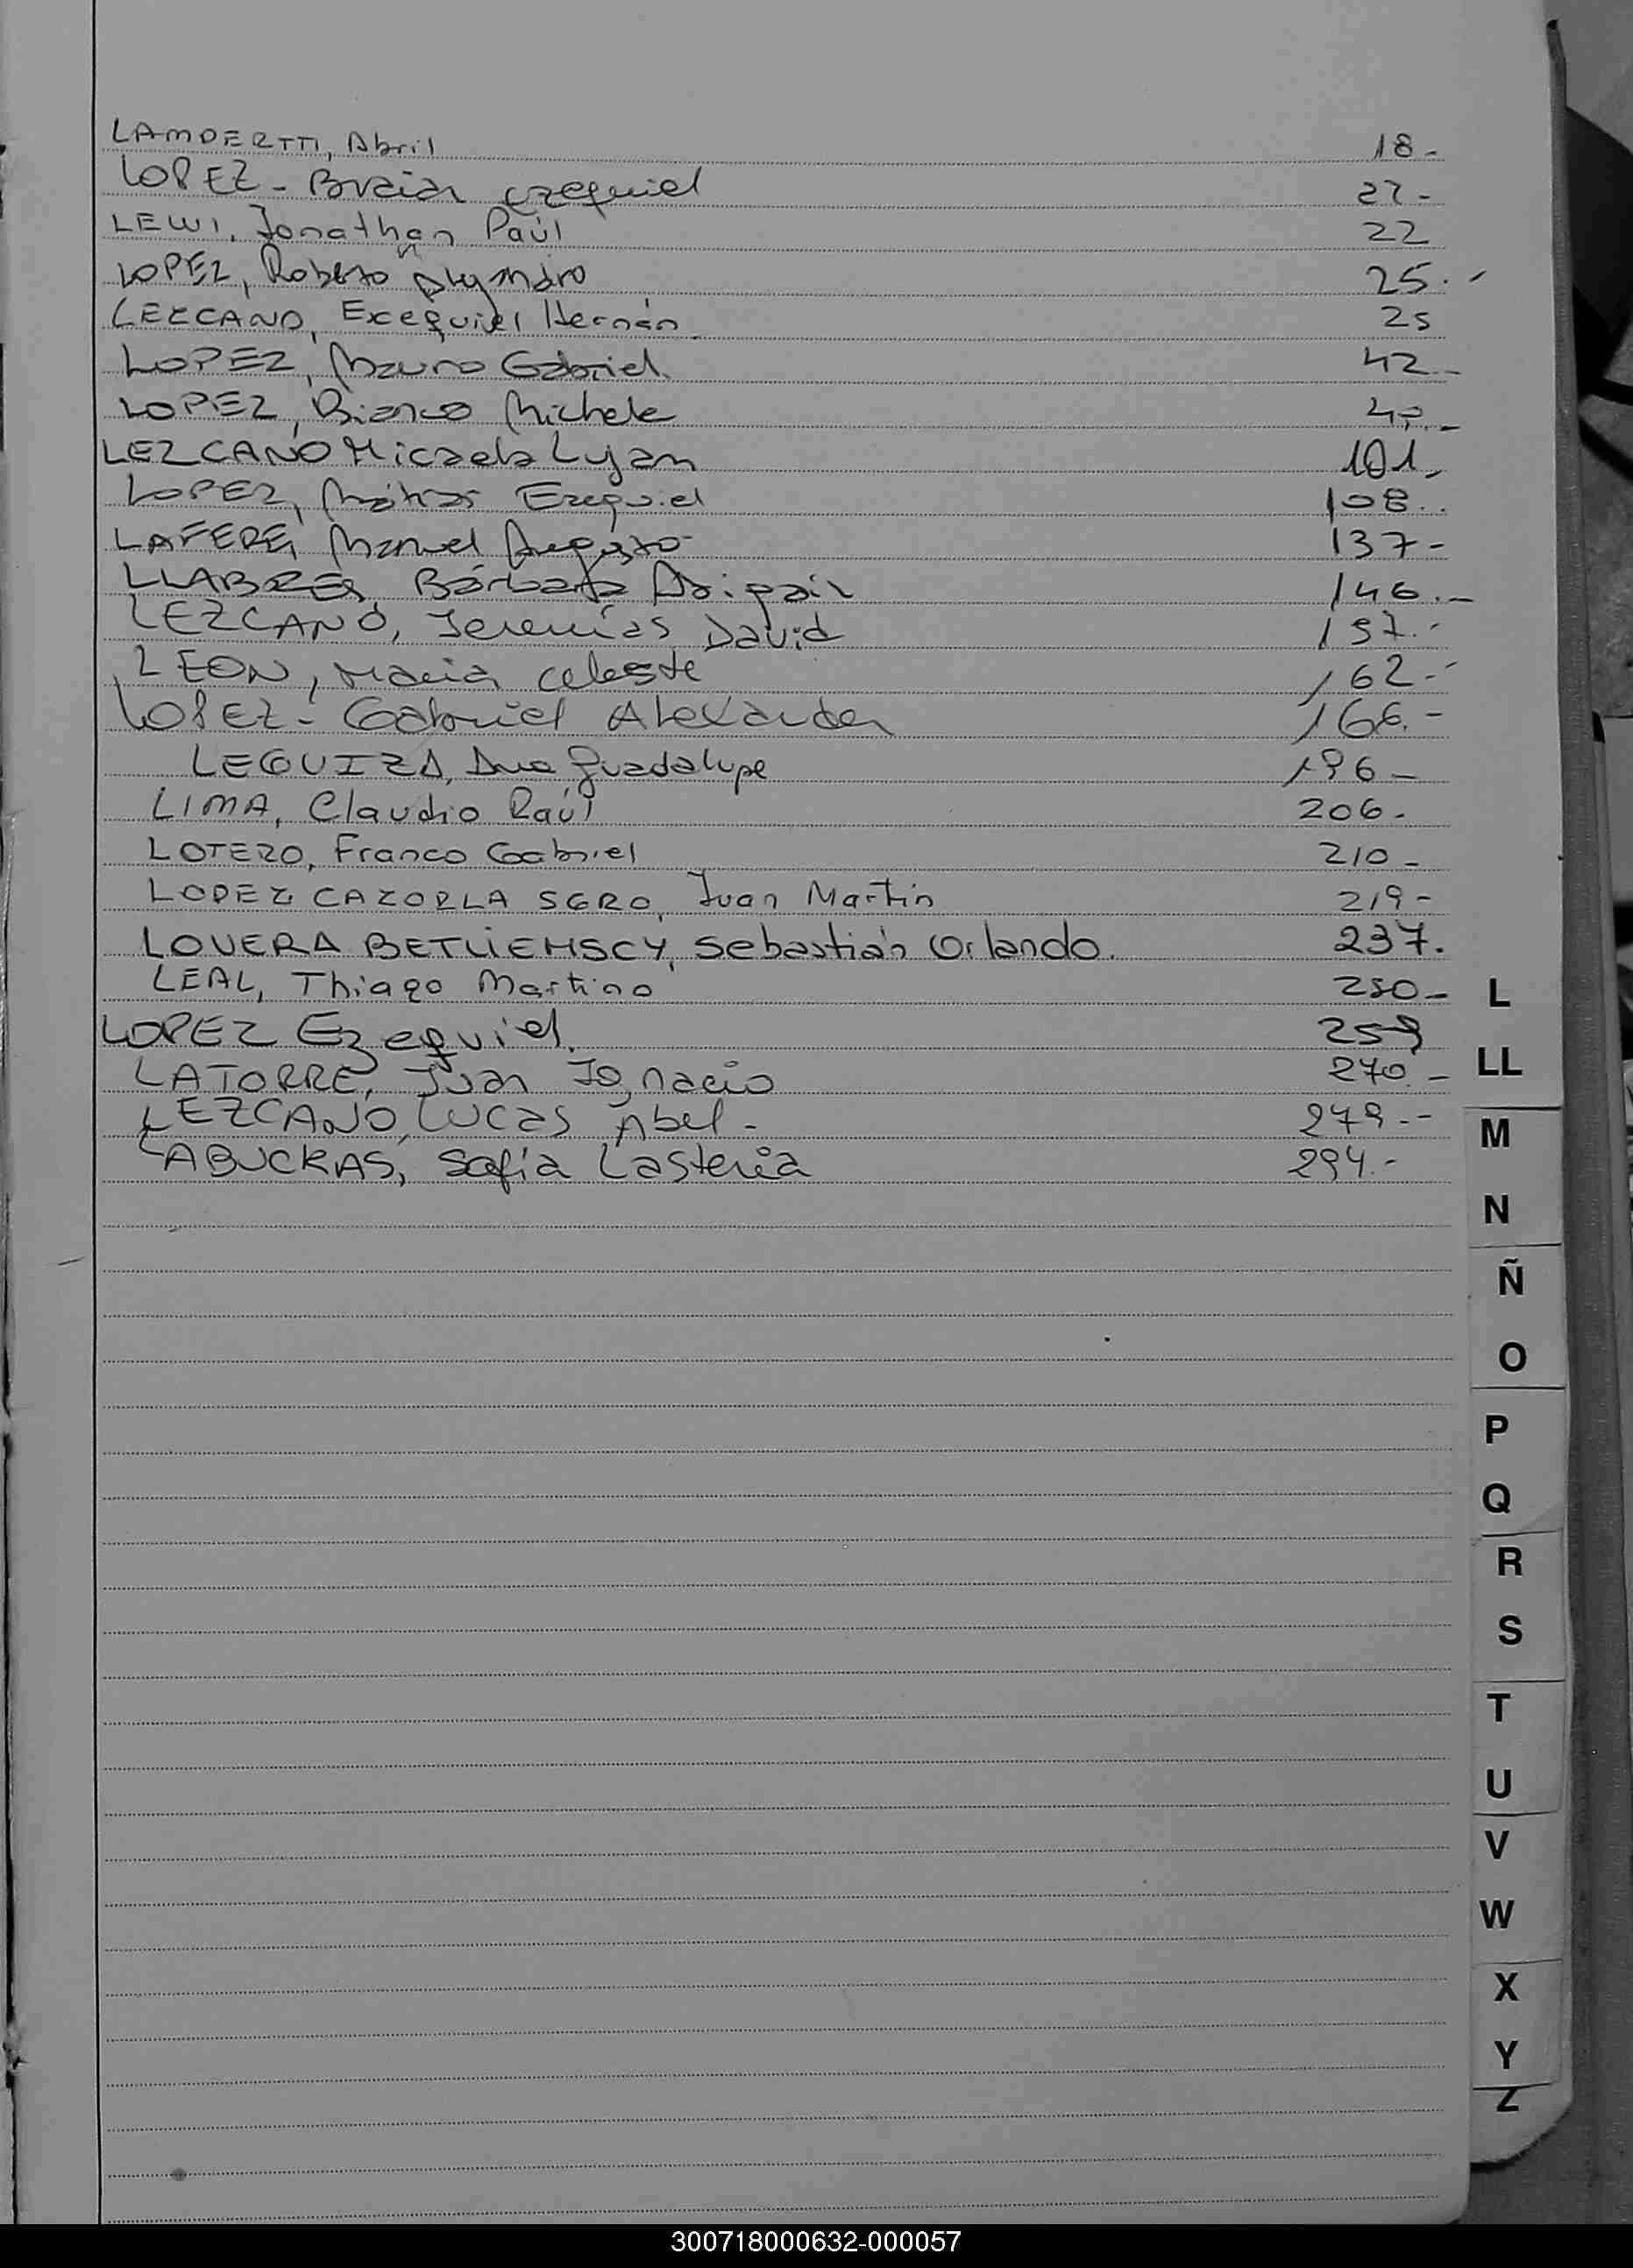 LAMBERTTI, Abril 18-
LOPEZ - Braian ezequiel 22-
LEWI, Jonathan Paúl 22
LOPEZ, Roberto Alejandro 25.-
LEZCANO, Exequiel Hernán 25
LOPEZ, Mauro Gabriel 42-
LOPEZ, Bianca Michele
LEZCANO Micaela Lujan 101-
LOPEZ, Matías Ezequiel 108..
LAFERE, Manuel Augusto 137-
LLABRES Bárbara Abigail 146.-
LEZCANO, Jeremías David 157.-
LEON, Maria celeste 162.-
LOPEZ - Gabriel Alexander 166.-
LEGUIZA, Ana Guadalupe 196-
LIMA, Claudio Raúl 206-
LOTERO, Franco Gabriel 210-
LOPEZ CAZORLA SGRO, Juan Martin 219-
LOVERA BETLIEMSCY, Sebastián Orlando. 237.
LEAL, Thiago Martino 250-
LOPEZ Ezequiel. 259
LATORRE, Juan Ignacio 270.-
LEZCANO, Lucas Abel- 279.-
LABUCKAS, Sofía Lasteria 294.-
L
LL
M
N
Ñ
O
P
Q
R
S
T
U
V
W
X
Y
Z
300718000632-000057